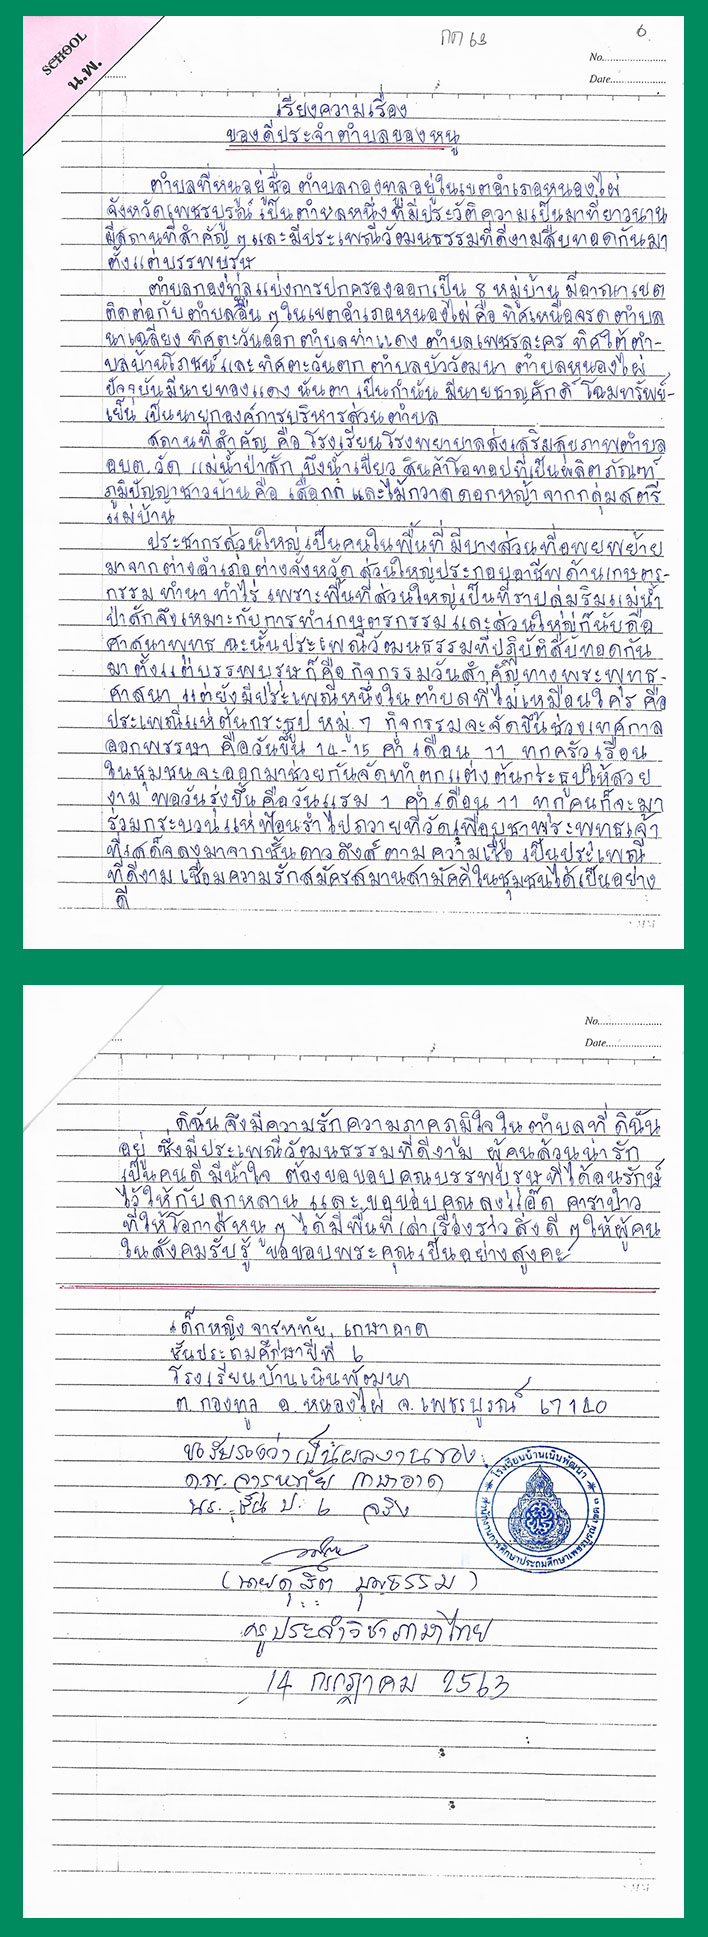 SCHOOL
น.พ.
กค 63
6
No.
Date
เรียงความเรื่อง
ของดีประจำตำบลของหนู
ตำบลที่หนูอยู่ชื่อ ตำบลกองทูลอยู่ในเขตอำเภอหนองไผ่
จังหวัดเพชรบูรณ์ เป็นตำบลหนึ่งที่มีประวัติความเป็นมาที่ยาวนาน
มีสถานที่สำคัญ ๆ และมีประเพณีวัฒนธรรมที่ดีงามสืบทอดกันมา
ตั้งแต่บรรพบุรุษ
ตำบลกองทูลแบ่งการปกครองออกเป็น 8 หมู่บ้าน มีอาณาเขต
ติดต่อกับตำบลอื่น ๆ ในเขตอำเภอหนองไผ่ คือ ทิศเหนือจรดตำบล
นาเฉลียง ทิศตะวันออก ตำบลท่าแดง ตำบลเพชรละคร ทิศใต้ตำ-
บลบ้านโภชน์ และทิศตะวันตก ตำบลบัววัฒนา ตำบลหนองไผ่
ปัจจุบันมีนายทองแดง นันตา เป็นกำนัน มีนายชาญศักดิ์ โฉมทรัพย์-
เย็น เป็นนายกองค์การบริหารส่วนตำบล
สถานที่สำคัญ คือ โรงเรียนโรงพยาบาลส่งเสริมสุขภาพตำบล
อบต. วัด แม่น้ำป่าสัก บึงน้ำเขียว สินค้าโอทอปที่เป็นผลิตภัณฑ์
ภูมิปัญญาชาวบ้าน คือ เสื่อกก และไม้กวาดดอกหญ้า จากกลุ่มสตรี
แม่บ้าน
ประชากรส่วนใหญ่เป็นคนในพื้นที่ มีบางส่วนที่อพยพย้าย
มาจากต่างอำเภอต่างจังหวัด ส่วนใหญ่ประกอบอาชีพด้านเกษตร-
กรรม ทำนา ทำไร่ เพราะพื้นที่ส่วนใหญ่เป็นที่ราบลุ่มริมแม่น้ำ
ป่าสักจึงเหมาะกับการทำเกษตรกรรม และส่วนใหญ่ก็นับถือ
ศาสนาพุทธ ฉะนั้นประเพณีวัฒนธรรมที่ปฏิบัติสืบทอดกัน
มาตั้งแต่บรรพบุรุษก็คือ กิจกรรมวันสำคัญทางพระพุทธ-
ศาสนา แต่ยังมีประเพณีหนึ่งในตำบลที่ไม่เหมือนใคร คือ
ประเพณีแห่ต้นกระธูป หมู่ 7 กิจกรรมจะจัดขึ้นช่วงเทศกาล
ออกพรรษา คือวันขึ้น 14-15 ค่ำ เดือน 11 ทุกครัวเรือน
ในชุมชนจะออกมาช่วยกันจัดทำตกแต่งต้นกระธูปให้สวย
งาม พอวันรุ่งขึ้น คือวันแรม 1 ค่ำ เดือน 11 ทุกคนก็จะมา
ร่วมกระบวนแห่ฟ้อนรำไปถวายที่วัดเพื่อบูชาพระพุทธเจ้า
ที่เสด็จลงมาจากชั้นดาวดึงส์ ตามความเชื่อ เป็นประเพณี
ที่ดีงาม เชื่อมความรักสมัครสมานสามัคคีในชุมชนได้เป็นอย่าง
ดี
No.
Date
ดิฉัน จึงมีความรักความภาคภูมิใจในตำบลที่ดิฉัน
อยู่ ซึ่งมีประเพณีวัฒนธรรมที่ดีงาม ผู้คนล้วนน่ารัก
เป็นคนดี มีน้ำใจ ต้องขอขอบคุณบรรพบุรุษที่ได้อนุรักษ์
ไว้ให้กับลูกหลาน และ ขอขอบคุณ ลุงแอ๊ด คาราบาว
ที่ให้โอกาสหนู ๆ ได้มีพื้นที่เล่าเรื่องราว สิ่งดี ๆ ให้ผู้คน
ในสังคมรับรู้ ขอขอบพระคุณเป็นอย่างสูงค่ะ
เด็กหญิง จารุหทัย เกษาอาด
ชั้นประถมศึกษาปีที่ 6
โรงเรียนบ้านเนินพัฒนา
ต. กองทูล อ. หนองไผ่ จ. เพชรบูรณ์ 67140
ขอรับรองว่าเป็นผลงานของ
ด.ญ. จารุหทัย เกษาอาด
นร. ชั้น ป. 6 จริง
โรงเรียนบ้านเนินพัฒนา
สำนักงานการศึกษาประถมศึกษาเพชรบูรณ์ เขต ๓
(นายดุสิต บุญธรรม)
ครูประจำวิชาภาษาไทย
14 กรกฎาคม 2563